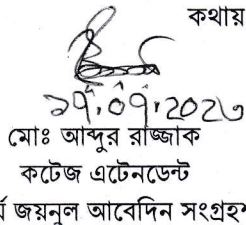 কথায়
১৭.০৭.2020
মোঃ আব্দুর রাজ্জাক
কটেজ এটেনডেন্ট
জয়নুল আবেদিন সংগ্রহ